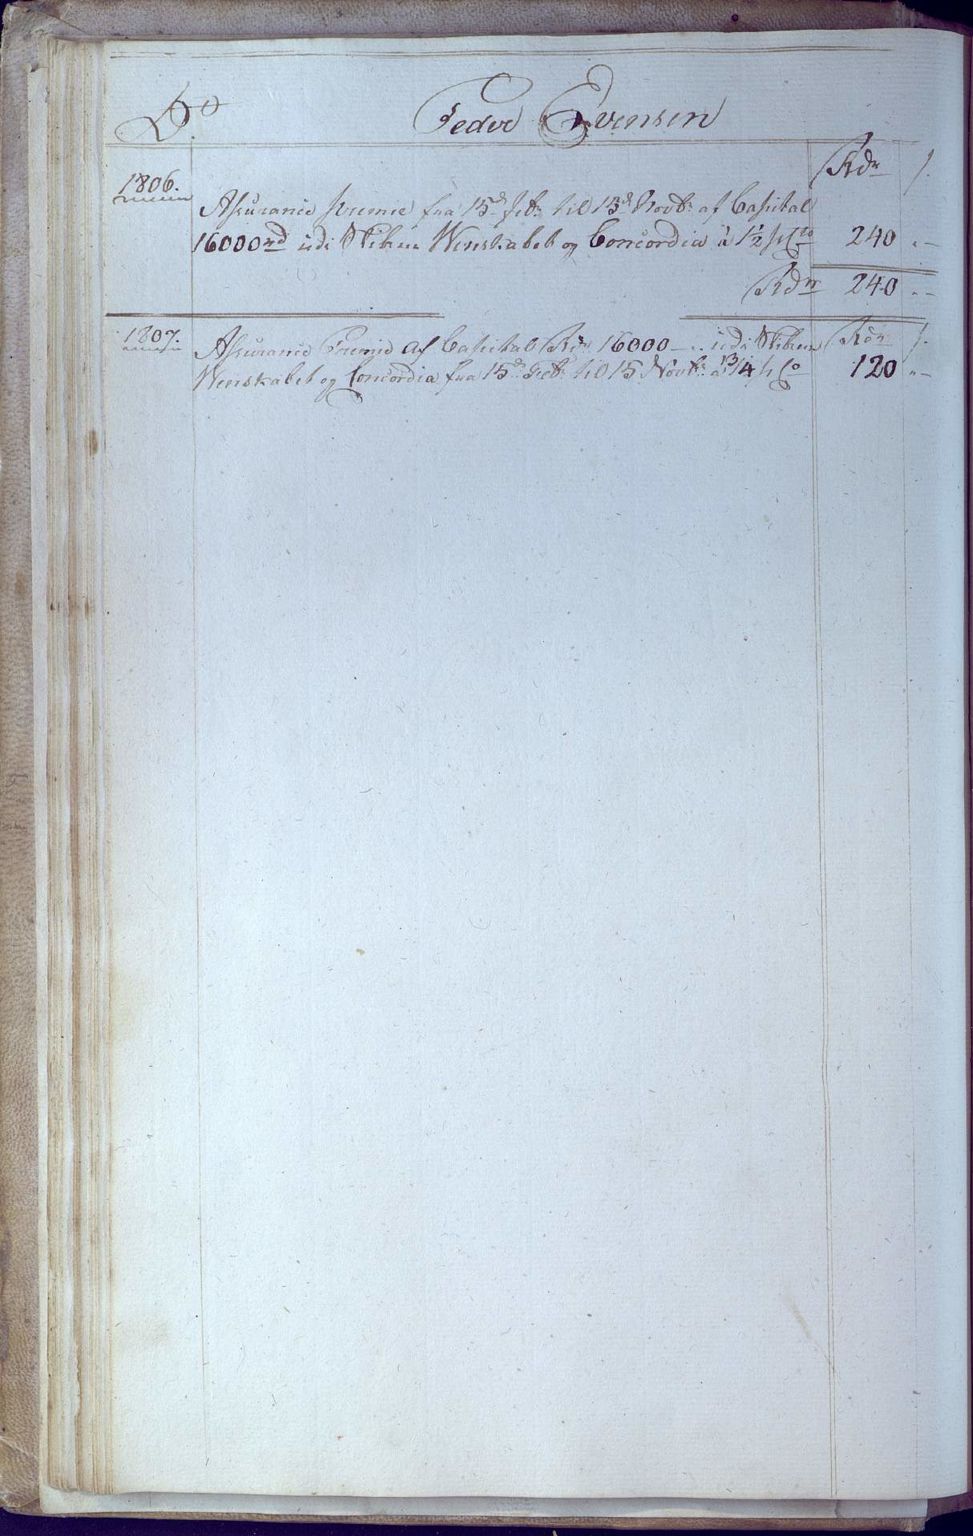 Do Peder Evensen
Rdr ß.
1806.
Assurance Premie fra 15d Feb: til 15d Novbr: af Capital
16000rd udi Skibene Wenskabet og Concordia à 1½ pCto 240 "—
Rdr 240 "—
1807. Assurance Premie af Capital Rdr 16000 — udi Skibene Rdr ß.
Wenskabet og Concordia fra 15d Feb: til 15 Novbr: à 3/4 pCo 120 "—